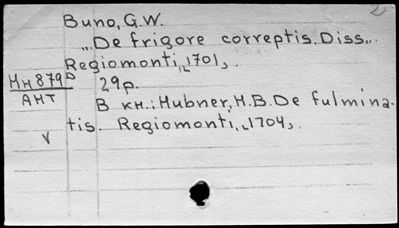 2
Buno, G.W.
„De frigore correptis. Diss„.
Regiomonti, [1701].
Мн879D
АНТ
29p.
В кн.: Hubner, H.B. De fulmina-
tis. Regiomonti, [1704].
v